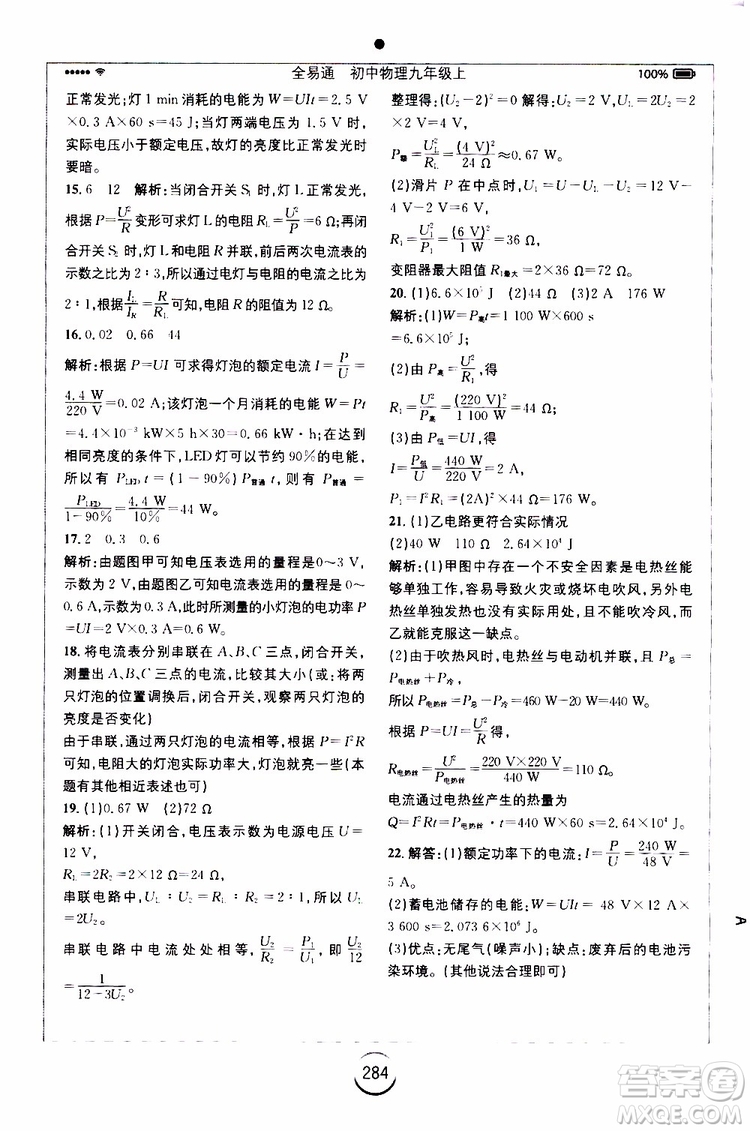 全易通 初中物理九年级上
100%
正常发光;灯1 min消耗的电能W=UIt=2.5 V
×0.3 A×60 s=45 J;当灯两端电压为1.5 V时,
实际电压小于额定电压,故灯的亮度比正常发光时
要暗。
15.6 12 解析:当闭合开关S₁时,灯L正常发光,
根据P=U²/R变形可求灯L的电阻R_L=U²/P=6 Ω;再闭
合开关S₂时,灯L与电阻R并联,前后两次电流表的
示数之比为2∶3,所以通过电灯与电阻的电流之比为
2∶1,根据I_L/I_R=R/R_L可知,电阻R的阻值为12 Ω。
16.0.02 0.66 44
解析:根据P=UI可求得灯泡的额定电流I=P/U=
4.4 W/220 V=0.02 A;该灯泡一个月消耗的电能W=Pt
=4.4×10⁻³ kW×5 h×30=0.66 kW·h;在达到
相同亮度的条件下,LED灯可以节约90%的电能,
所以有P_LED t=(1-90%)P_普通 t,则P_普通=
P_LED/1-90%=4.4 W/10%=44 W。
17.2 0.3 0.6
解析:由题图甲可知电压表选用的量程是0~3 V,
示数为2 V,由题图乙可知电流表选用的量程是0~
0.6 A,示数为0.3 A;此时所测量的小灯泡的电功率P
=UI=2 V×0.3 A=0.6 W。
18.将电流表分别串联在A、B、C三点,闭合开关,
测量出A、B、C三点的电流,比较其大小。(或将两
只灯泡的位置调换后,闭合开关,观察两只灯泡的
亮度是否变化)
由于串联,通过两只灯泡的电流相等,根据P=I²R
可知,电阻大的灯泡实际功率大,灯泡亮一些(本
题有其他相近表述也可)
19.(1)0.67 W (2)72 Ω
解析:(1)开关闭合,电压表示数为电源电压U=
12 V,
R_L=2R₂=2×12 Ω=24 Ω,
串联电路中,U_L∶U₂=R_L∶R₂=2∶1,所以U_L
=2U₂。
串联电路中电流处处相等,U₂/R₂=P₁/U₁,即U₂/12
=1/12-3U₂。
整理得:(U₂-2)²=0 解得:U₂=2 V U_L=2U₂=2
×2 V=4 V,
P_L=U_L²/R_L=(4 V)²/24 Ω≈0.67 W。
(2)滑片P在中点时,U₁=U-U_L-U₂=12 V-
4 V-2 V=6 V,
R₁=U₁²/P₁=(6 V)²/1 W=36 Ω,
变阻器最大阻值R₁最大=2×36 Ω=72 Ω。
20.(1)6.6×10⁵ J (2)44 Ω (3)2 A 176 W
解析:(1)W=P_高t=1 100 W×600 s
=6.6×10⁵ J;
(2)由P_高=U²/R₁,得
R₁=U²/P_高=(220 V)²/1 100 W=44 Ω;
(3)由P_低=UI,得
I=P_低/U=440 W/220 V=2 A,
P₁=I²R₁=(2A)²×44 Ω=176 W。
21.(1)乙电路更符合实际情况
(2)40 W 110 Ω 2.64×10⁴ J
解析:(1)甲图中存在一个不安全因素是电热丝能
够单独工作,容易导致火灾或烧坏电吹风,另外电
热丝单独发热也没有实际应用,却不能吹冷风,而
乙就能克服这一缺点。
(2)由于吹热风时,电热丝与电动机并联,且P_总=
P_电热丝+P_冷,
所以P_电热丝=P_总-P_冷=460 W-20 W=440 W。
根据P=UI=U²/R得,
R_电热丝=U²/P_电热丝=220 V×220 V/440 W=110 Ω。
电流通过电热丝产生的热量为
Q=I²Rt=P_电热丝·t=440 W×60 s=2.64×10⁴ J。
22.解答:(1)额定功率下的电流:I=P/U=240 W/48 V=
5 A。
(2)蓄电池储存的电能:W=UIt=48 V×12 A×
3 600 s=2.073 6×10⁶ J。
(3)优点:无尾气(噪声小);缺点:废弃后的电池污
染环境。(其他说法合理即可)
A
284
答案圈
MXQE.COM